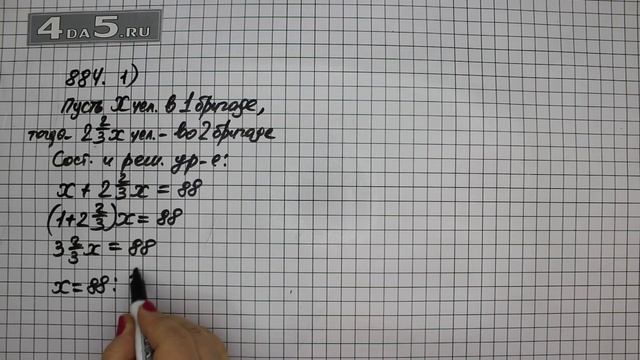 4DA5.RU
884. 1)
Пусть x чел. в 1 бригаде,
тогда 2 2/3 x чел. - во 2 бригаде
Сост. и реш. ур-е:
x + 2 2/3 x = 88
(1+2 2/3)x = 88
3 2/3 x = 88
x = 88 :